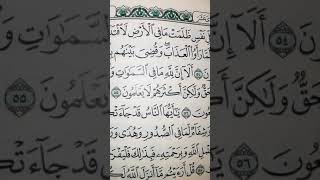 نَفْسٍ ظَلَمَتْ مَا فِي ٱلْأَرْضِ لَٱفْتَدَ
رَأَوُاْ ٱلْعَذَابَ وَقُضِيَ بَيْنَهُم
٥٤ أَلَآ إِنَّ لِلَّهِ مَا فِي ٱلسَّمَٰوَٰتِ
حَقٌّ وَلَٰكِنَّ أَكْثَرَهُمْ لَا يَعْلَمُونَ ٥٥
عُونَ ٥٦ يَٰٓأَيُّهَا ٱلنَّاسُ قَدْ جَآءَتْكُم
وَشِفَآءٌ لِّمَا فِي ٱلصُّدُورِ وَهُدًى وَ
ٱللَّهِ وَبِرَحْمَتِهِۦ فَبِذَٰلِكَ فَلْيَفْرَ
قُلْ أَرَءَيْتُم مَّآ أَنزَلَ ٱللَّهُ لَكُ